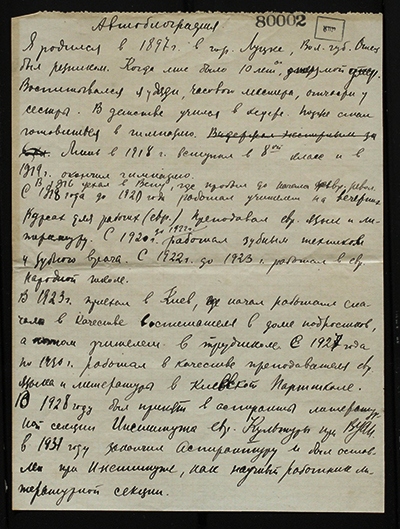 Автобиография
80002
Я родился в 1897 г. в гор. Луцке, Вол. губ. Отец
был резником. Когда мне было 10 лет умер мой отец.
Воспитывался я у дяди, часового мастера, отчасти у
сестры. В детстве учился в хедере. Позже стал
готовиться в гимназию. Выдержал экстерном за
Лишь в 1918 г. вступил в 8ой класс и в
1919 г. окончил гимназию.
В 1916 уехал в Вену, где пробыл до начала револ.
С 1918 года до 1920 года работал учителем на вечерних
Курсах для рабочих (евр.) Преподавал евр. язык и ли-
тературу. С 1920 г. до 1922 г. работал зубным техником
у зубного врача. С 1922 г. до 1923 г. работал в евр.
народной школе.
В 1923 г. приехал в Киев, где начал работать сна-
чала в качестве воспитателя в доме подростков,
а потом учителем в трудшколе. С 1927 года
по 1930 г. работал в качестве преподавателя евр.
языка и литературы в Киевской Партшколе.
В 1928 году был принят в аспиранты литератур-
ной секции Института евр. Культуры при ВУАН.
в 1931 году закончил Аспирантуру и был остав-
лен при Институте, как научный работник ли-
тературной секции.